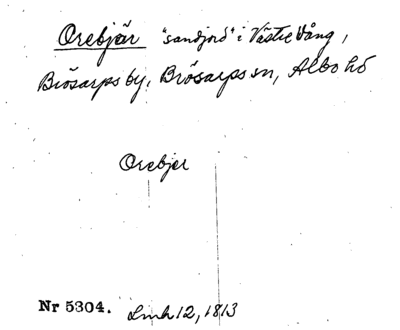 Orebjär "sandjord" i Västre Vång,
Brösarps by, Brösarps sn, Albo hd
Orebjer
Nr 5304. Lmh 12, 1813